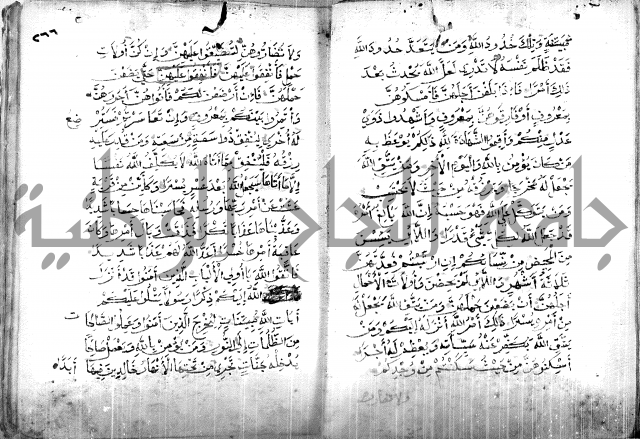 مبينة وتلك حدود الله ومن يتعد حدود الله
فقد ظلم نفسه لا تدري لعل الله يحدث بعد
ذلك امرا فاذا بلغن اجلهن فامسكوهن
بمعروف او فارقوهن بمعروف واشهدوا ذوي
عدل منكم واقيموا الشهادة لله ذلكم يوعظ به
من كان يؤمن بالله واليوم الاخر ومن يتق الله
يجعل له مخرجا ويرزقه من حيث لا يحتسب
ومن يتوكل على الله فهو حسبه ان الله بالغ امره
قد جعل الله لكل شيء قدرا واللائي يئسن
من المحيض من نسائكم ان ارتبتم فعدتهن
ثلاثة اشهر واللائي لم يحضن واولات الاحمال
اجلهن ان يضعن حملهن ومن يتق الله يجعل له
من امره يسرا ذلك امر الله انزله اليكم ومن
يتق الله يكفر عنه سيئاته ويعظم له اجرا
اسكنوهن من حيث سكنتم من وجدكم
٢٦٦
ولا تضاروهن لتضيقوا عليهن وان كن اولات
حمل فانفقوا عليهن فانفقوا عليهن حتى يضعن
حملهن فان ارضعن لكم فاتوهن اجورهن
واتمروا بينكم بمعروف وان تعاسرتم فسترضع
له اخرى لينفق ذو سعة من سعته ومن قدر عليه
رزقه فلينفق مما اتاه الله لا يكلف الله نفسا
الا ما اتاها سيجعل الله بعد عسر يسرا وكاين من قرية
عتت عن امر ربها ورسله فحاسبناها حسابا شديدا
وعذبناها عذابا نكرا فذاقت وبال امرها وكان
عاقبة امرها خسرا اعد الله لهم عذابا شديدا
فاتقوا الله يا اولي الالباب الذين امنوا قد انزل
الله اليكم ذكرا رسولا يتلو عليكم
ايات الله مبينات ليخرج الذين امنوا وعملوا الصالحات
من الظلمات الى النور ومن يؤمن بالله ويعمل صالحا
يدخله جنات تجري من تحتها الانهار خالدين فيها ابدا
جامعة النجاح الوطنية